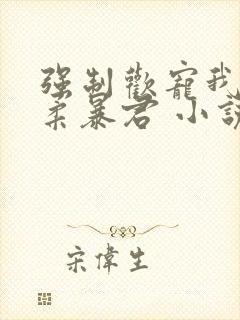 強制歡寵我
柔暴君 小說
宋偉生